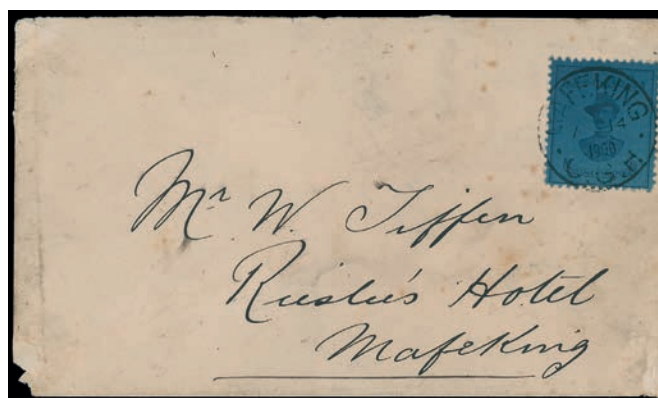 MAFEKING
1900
C.G.H.
Mr. W. Tiffen
Riesle's Hotel
Mafeking